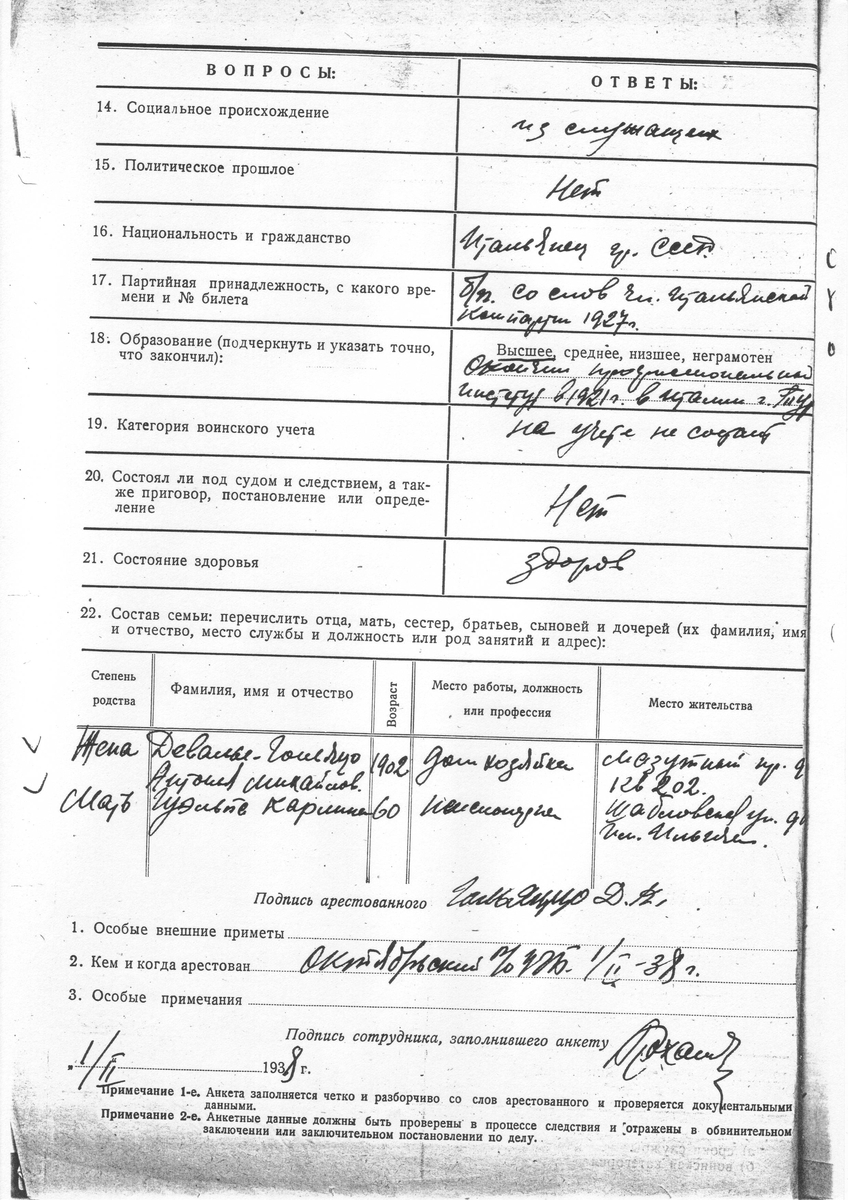 ВОПРОСЫ:
ОТВЕТЫ:
14. Социальное происхождение
из служащих
15. Политическое прошлое
Нет
16. Национальность и гражданство
Итальянец гр. СССР.
17. Партийная принадлежность, с какого вре-
мени и № билета
б/п. со слов чл. Итальянской
Компартии 1927г.
18. Образование (подчеркнуть и указать точно,
что закончил):
Высшее, среднее, низшее, неграмотен
Окончил профессиональный
институт в 1921г. в Италии г.
19. Категория воинского учета
на учете не состоит
20. Состоял ли под судом и следствием, а так-
же приговор, постановление или опреде-
ление
Нет
21. Состояние здоровья
здоров
22. Состав семьи: перечислить отца, мать, сестер, братьев, сыновей и дочерей (их фамилия, имя
и отчество, место службы и должность или род занятий и адрес):
Степень
родства
Фамилия, имя и отчество
Возраст
Место работы, должность
или профессия
Место жительства
Жена
1902
дом хозяйка
Мазутный пр. д
кв 202.
Мать
60
Подпись арестованного
Гальяццо Д. К.
1. Особые внешние приметы
2. Кем и когда арестован Октябрьский 1/II-38 г.
3. Особые примечания
Подпись сотрудника, заполнившего анкету
„1/II 1938 г.
Примечание 1-е. Анкета заполняется четко и разборчиво со слов арестованного и проверяется документальными
данными.
Примечание 2-е. Анкетные данные должны быть проверены в процессе следствия и отражены в обвинительном
заключении или заключительном постановлении по делу.